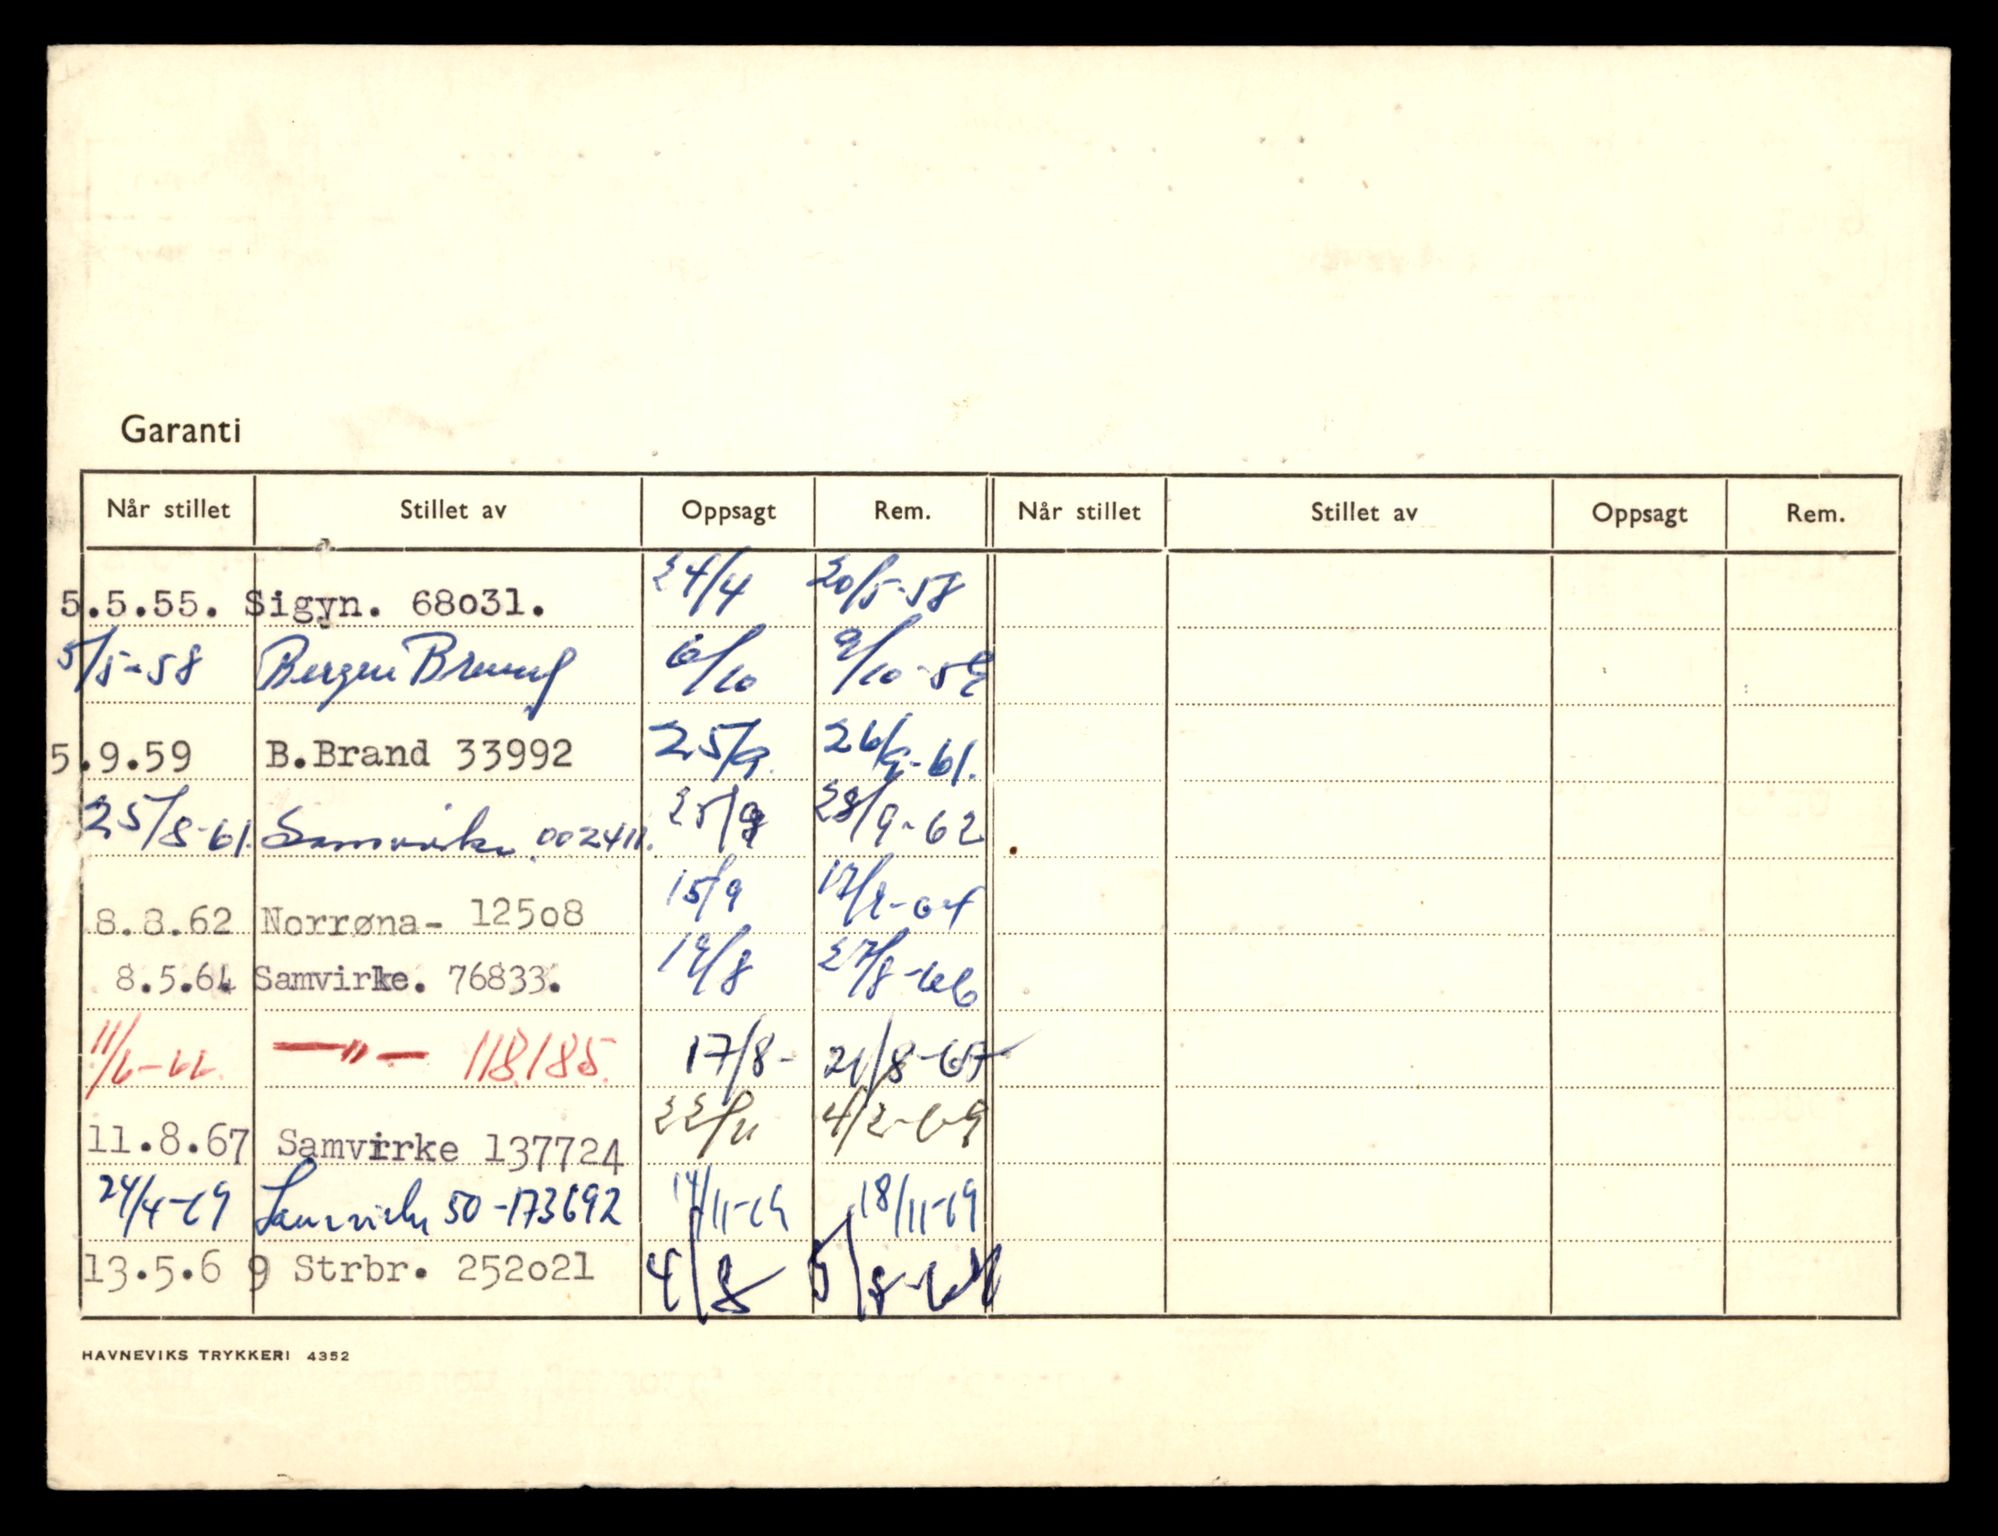 Garanti
Når stillet Stillet av Oppsagt Rem. Når stillet Stillet av Oppsagt Rem.
5.5.55. Sigyn. 68031. 24/4 20/5-58
5/5-58 Bergen Brand 6/10 9/10-59
5.9.59 B.Brand 33992 25/9. 26/9-61.
25/8-61. Samvirke 002411. 25/9 28/9-62
8.8.62 Norrøna- 12508 15/9 17/9-64
8.5.64 Samvirke. 76833. 19/8 27/8-66
11/6-66. —"— 118185. 17/8- 21/8-67
11.8.67 Samvirke 137724 22/11 4/2-69
24/4-69 Samvirke 50-173692 14/11-69 18/11-69
13.5.6 9 Strbr. 252021 4/8 5/8-
HAVNEVIKS TRYKKERI 4352